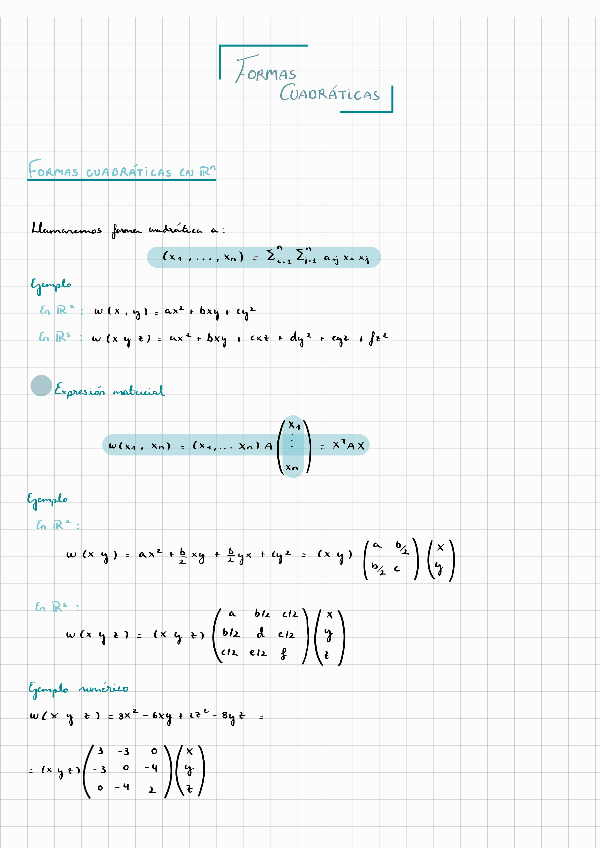 FORMAS
CUADRÁTICAS
FORMAS CUADRÁTICAS EN ℝⁿ
Llamaremos forma cuadrática a:
(x₁, ..., xₙ) = Σⁿᵢ₌₁ Σⁿⱼ₌₁ aᵢⱼ xᵢ xⱼ
Ejemplo
En ℝ²: w(x, y) = ax² + bxy + cy²
En ℝ³: w(x y z) = ax² + bxy + cxz + dy² + eyz + fz²
Expresión matricial
w(x₁, xₙ) = (x₁, ... xₙ) A (x₁ ⋮ xₙ) = XᵀAX
Ejemplo
En ℝ²:
w(x y) = ax² + b/2 xy + b/2 yx + cy² = (x y) (a b/2 ; b/2 c) (x ; y)
En ℝ³:
w(x y z) = (x y z) (a b/2 c/2 ; b/2 d e/2 ; c/2 e/2 f) (x ; y ; z)
Ejemplo numérico
w(x y z) = 3x² - 6xy + 2z² - 8yz =
= (x y z) (3 -3 0 ; -3 0 -4 ; 0 -4 2) (x ; y ; z)